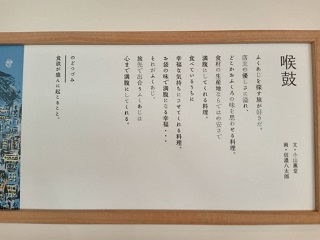 喉鼓
文・小山薫堂
画・信濃八太郎
ふくあじを探す旅が好きだ。
店主の優しさに溢れ、
どこかおふくろの味を思わせる料理。
食材の生産地ならではの安さで
満腹にしてくれる料理。
食べているうちに
幸福な気持ちにさせてくれる料理。
お袋の味で満腹になる幸福・・・
それがふくあじ。
旅先で出会うふくあじは
心まで満腹にしてくれる。
のどつづみ
食欲が盛んに起こること。